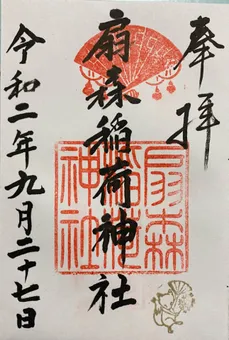 奉拝
扇森稲荷神社
扇森稲荷神社
令和二年九月二十七日